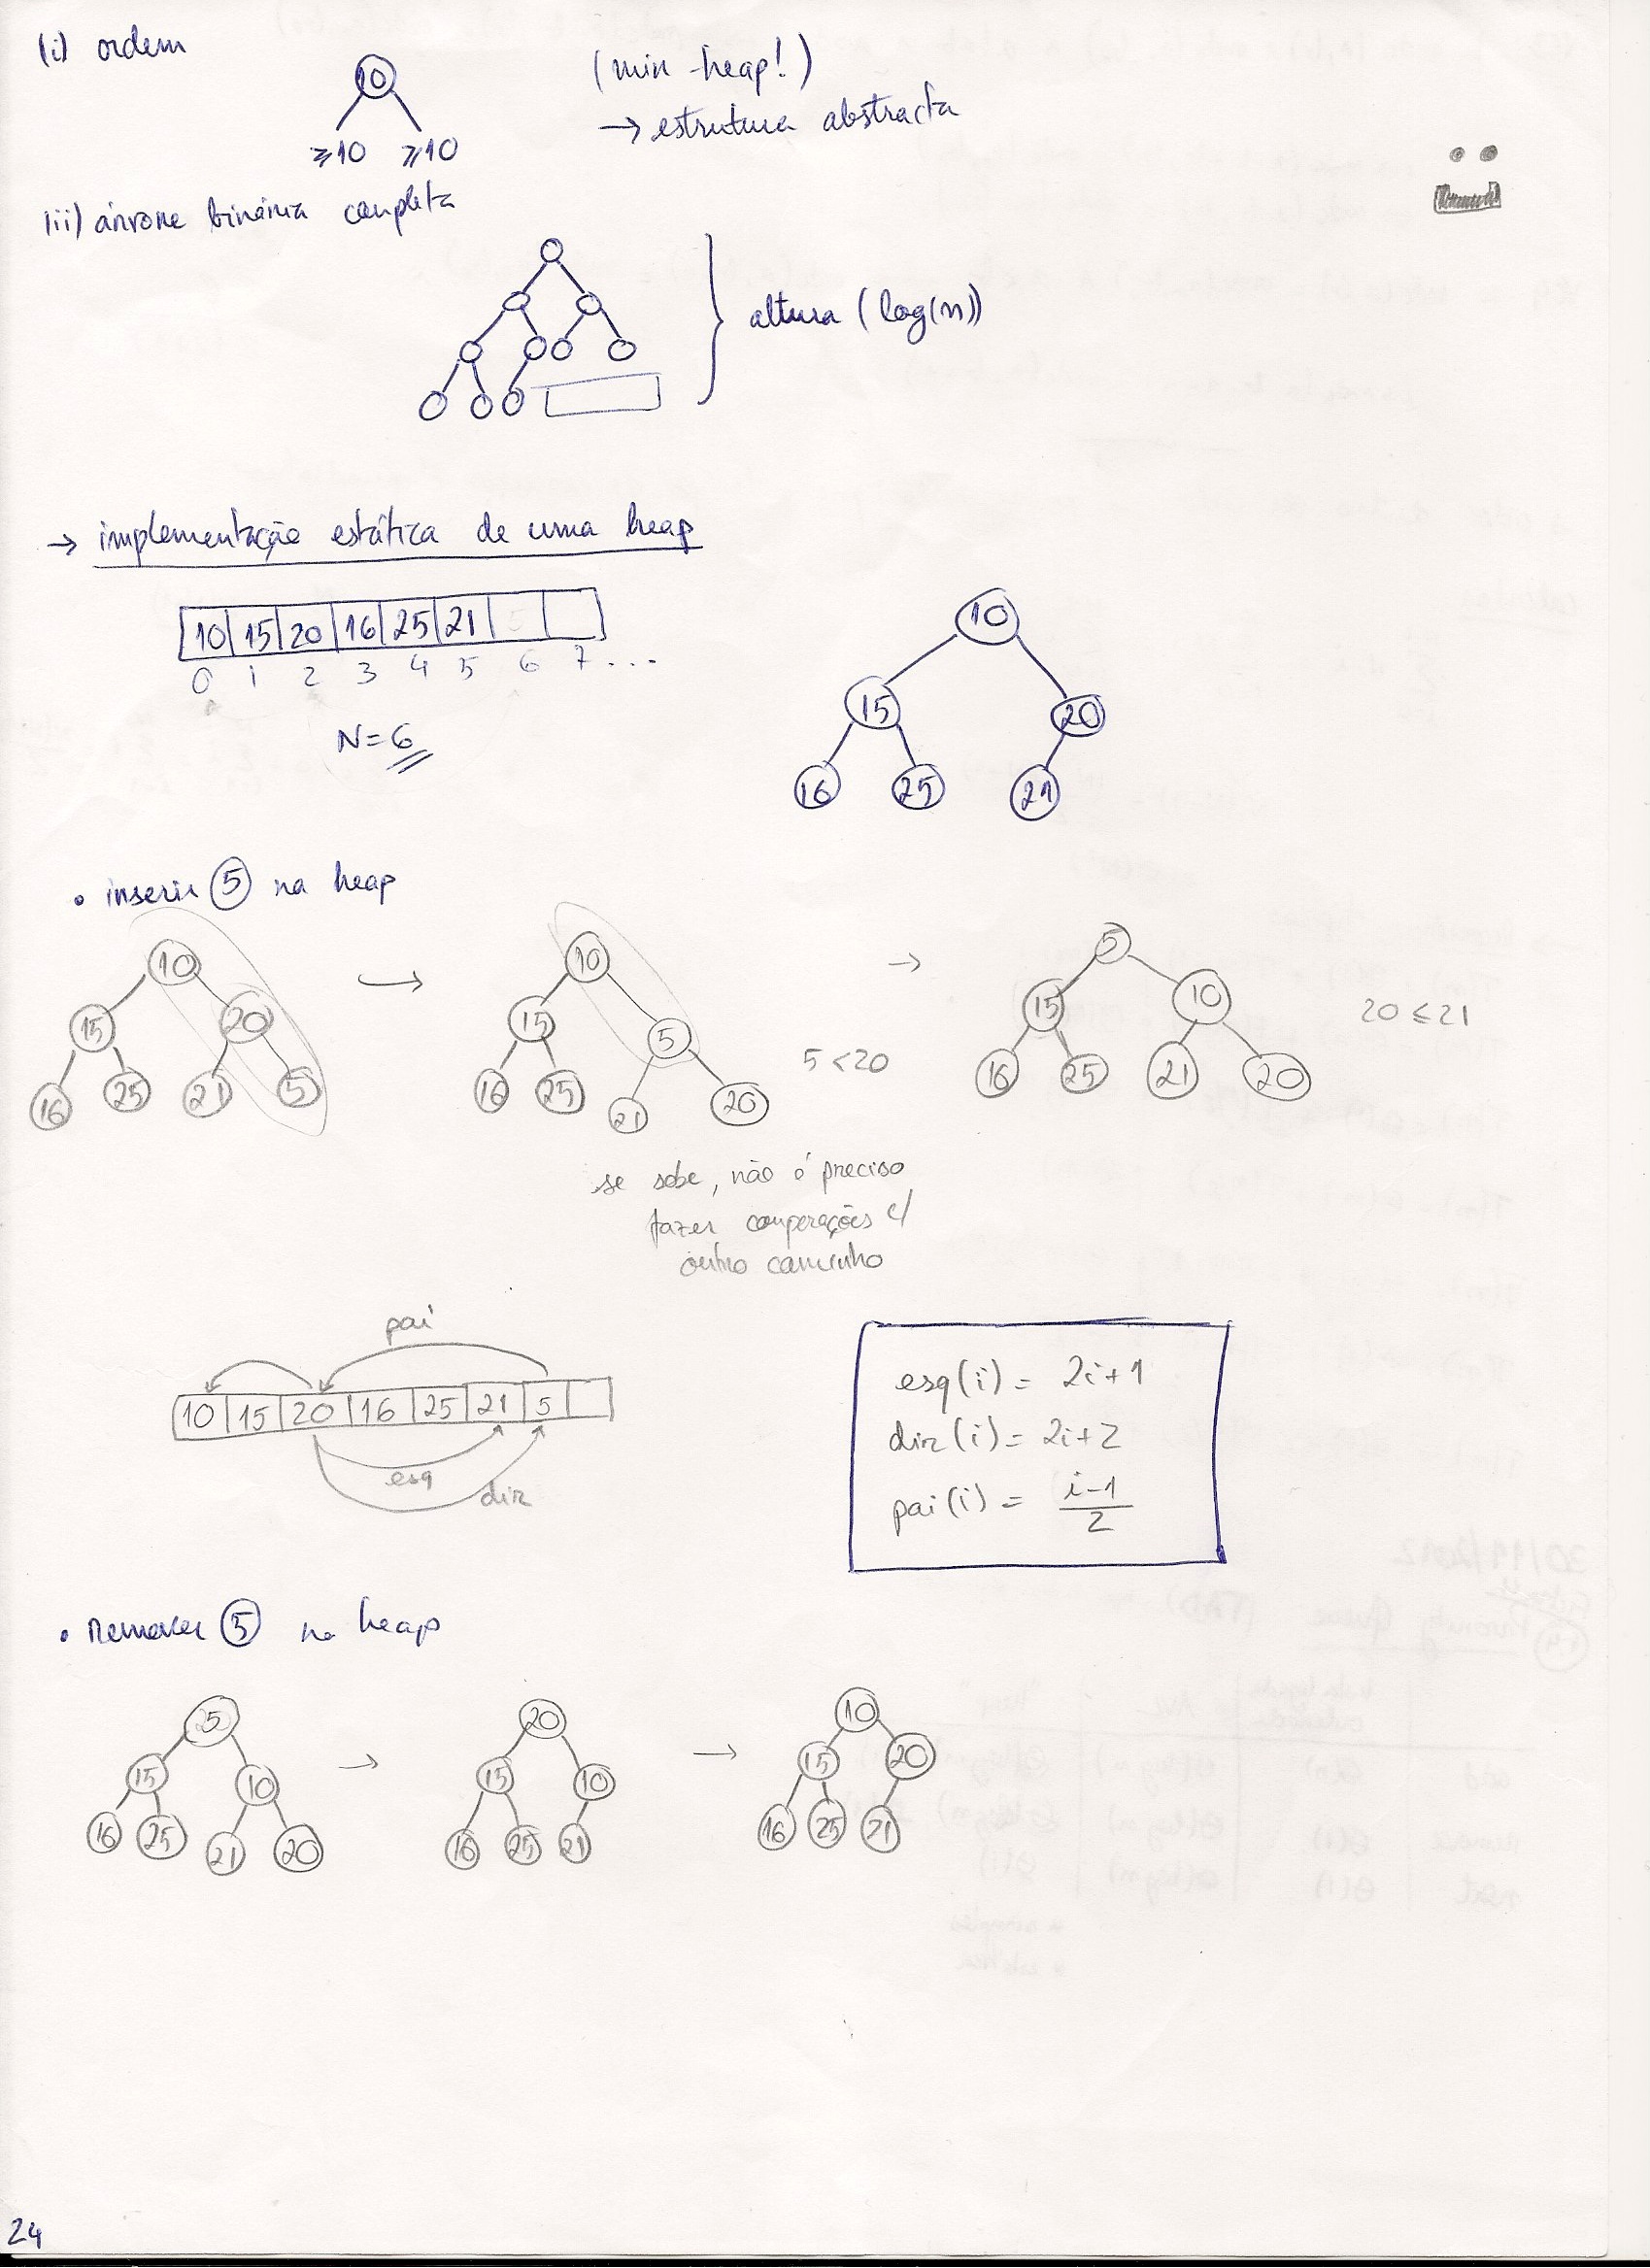 (i) ordem
10
≥10 ≥10
(min-heap!)
→ estrutura abstracta
(ii) árvore binária completa
altura (log(n))
→ implementação estática de uma heap
10 15 20 16 25 21
0 1 2 3 4 5 6 7 ...
N=6
10
15 20
16 25 21
• inserir 5 na heap
10
15 20
16 25 21 5
→
10
15 5
16 25 21 20
5<20
→
5
15 10
16 25 21 20
20≤21
se sobe, não é preciso
fazer comperações c/
outro caminho
pai
10 15 20 16 25 21 5
esq
dir
esq(i) = 2i+1
dir(i) = 2i+2
pai(i) = i-1
2
• Remover 5 na heap
25
15 10
16 25 21 20
→
20
15 10
16 25 21
→
10
15 20
16 25 21
24